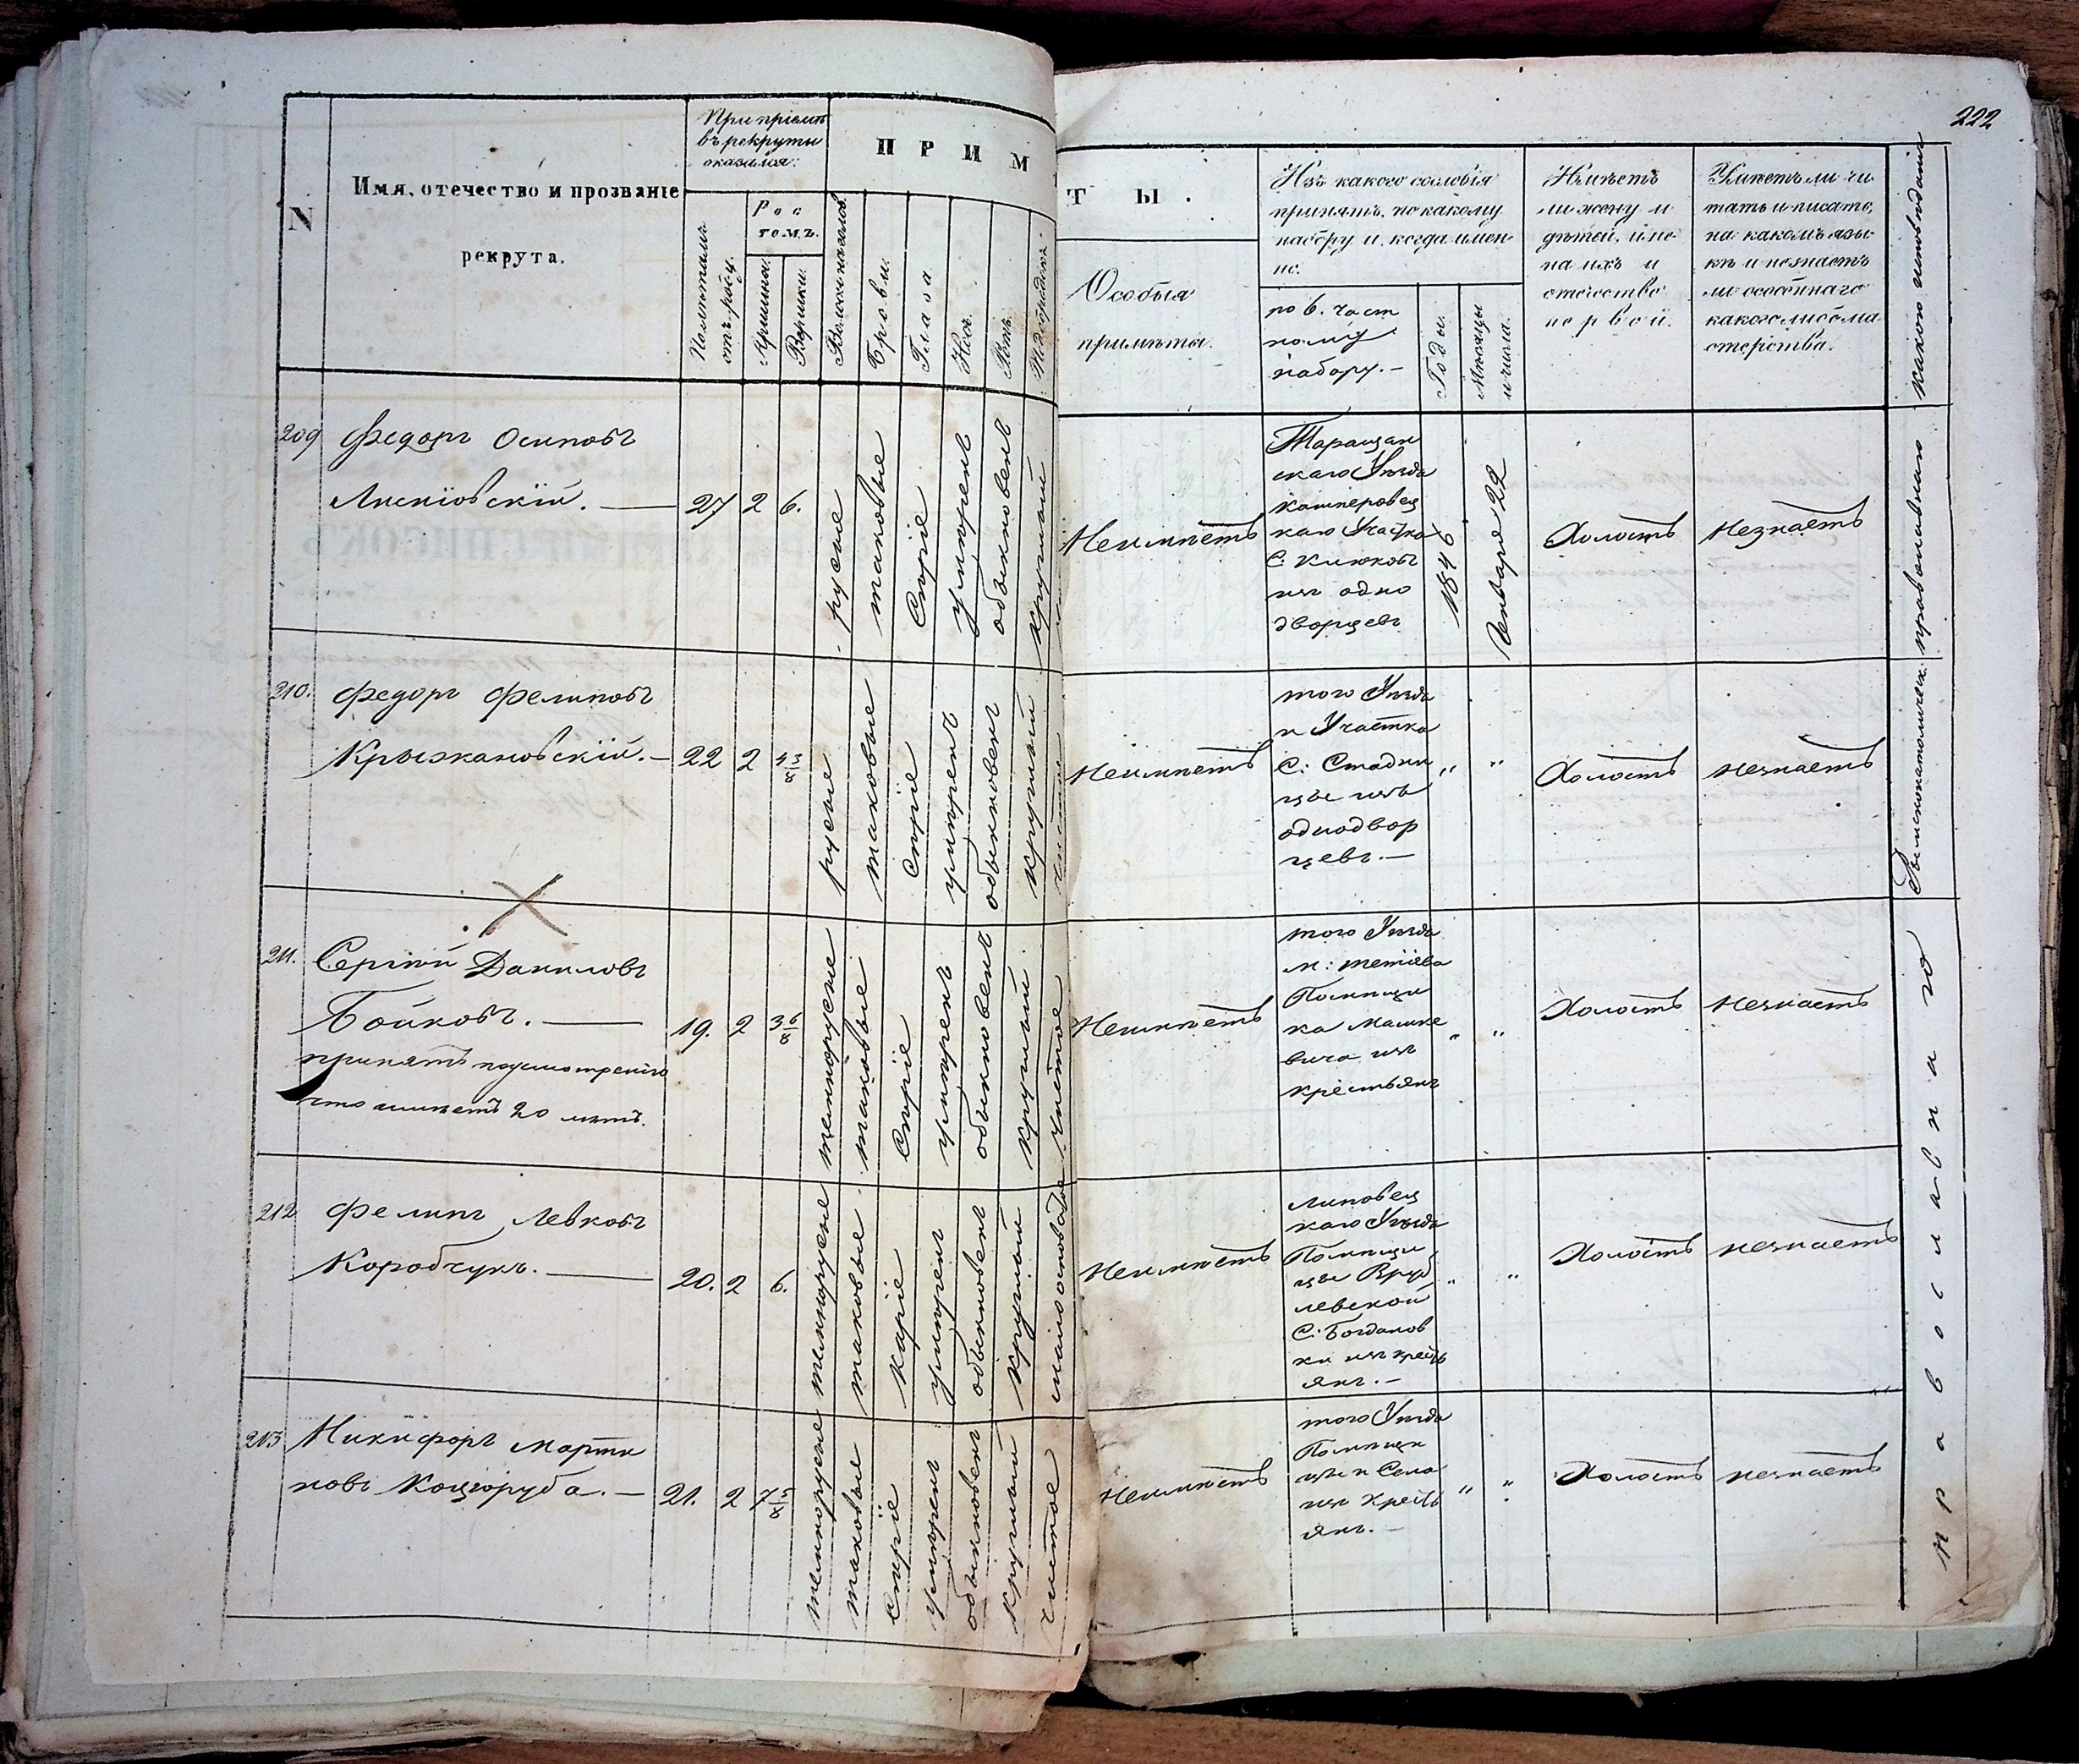 222
N
Имя, отечество и прозваніе
рекрута.
При пріемѣ
въ рекруты
оказался:
Рос
томъ.
Аршины.
Вершки.
П Р И М
Т Ы .
Брови.
Глаза
Носъ.
Ротъ.
Особыя
примѣты.
Изъ какого сословія
принятъ, по какому
набору и когда имен
но.
по 6. част
ному
набору. —
Годы.
Мѣсяцы
и числа.
Имѣетъ
ли жену и
дѣтей, име
на ихъ и
отечество
первой.
Умѣетъ ли чи
тать и писать,
на какомъ язы
кѣ и незнаетъ
ли особеннаго
какого либо ма
стерства.
какого исповѣданія
209
Федоръ Осиповъ
27 2 6.
русые
таковые
Сѣріе
умѣренъ
обыкновенъ
круглый
Неимѣетъ
Таращан
скаго Уѣзда
каго Участка
изъ одно
дворцевъ
1846
Генваря 22
Холостъ
Незнаетъ
210.
Федоръ Фелиповъ
Крыжановскій. —
22 2 4 3/8
русые
таковые
Сѣріе
умѣренъ
обыкновенъ
круглый
чистое
Неимѣетъ
того Уѣзда
и Участка
С: Стадни
цы изъ
однодвор
цевъ. —
" "
Холостъ
незнаетъ
Римскокатолическ. православнаго
211.
Сергій Даниловъ
Бойковъ. —
принятъ по усмотренію
что имѣетъ 20 лѣтъ.
19. 2 3 6/8
темнорусые
таковые
Сѣріе
умѣренъ
обыкновенъ
круглый
чистое
Неимѣетъ
того Уѣзда
м: Тетіева
Помѣщи
ка Машке
вича изъ
крестьянъ
" "
Холостъ
Незнаетъ
212
Фелипъ Левковъ
Коробчукъ. —
20. 2 6.
темнорусые
таковые
Каріе
умѣренъ
обыкновенъ
круглый
Неимѣетъ
Липовец
каго Уѣзда
Помѣщи
цы Вруб
левской
С: Богданов
ки изъ кресть
янъ. —
" "
Холостъ
незнаетъ
213
Никифоръ Марти
новъ Коцюруба. —
21. 2 7 5/8
темнорусые
таковые
Сѣріе
умѣренъ
обыкновенъ
круглый
чистое
Неимѣетъ
того Уѣзда
Помѣщи
цы и Села
изъ кресть
янъ. —
" "
Холостъ
незнаетъ
православнаго